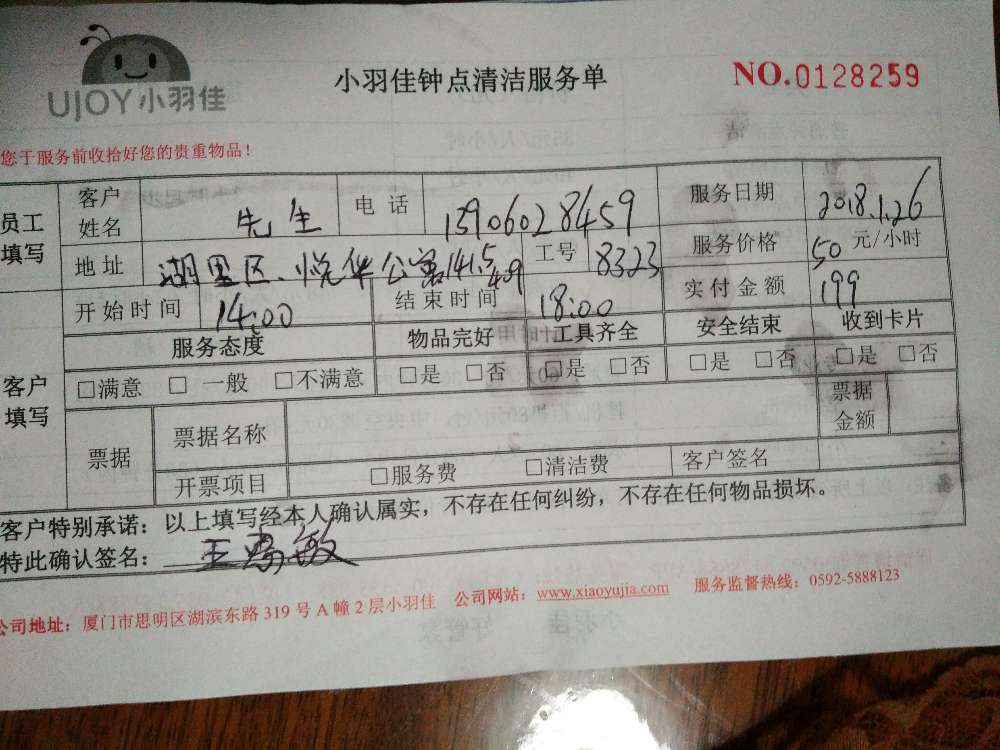 UJOY小羽佳
小羽佳钟点清洁服务单
NO.0128259
您于服务前收拾好您的贵重物品！
员工填写 客户姓名 先生 电话 13906028459 服务日期 2018.1.26
地址 湖里区、悦华公寓141.5 409 工号 8323 服务价格 50 元/小时
开始时间 14:00 结束时间 18:00 实付金额 199
客户填写 服务态度 物品完好 工具齐全 安全结束 收到卡片
□满意 □一般 □不满意 □是 □否 □是 □否 □是 □否 □是 □否
票据 票据名称 票据金额
开票项目 □服务费 □清洁费 客户签名
客户特别承诺：以上填写经本人确认属实，不存在任何纠纷，不存在任何物品损坏。
特此确认签名：
公司地址：厦门市思明区湖滨东路319号A幢2层小羽佳 公司网站：www.xiaoyujia.com 服务监督热线：0592-5888123